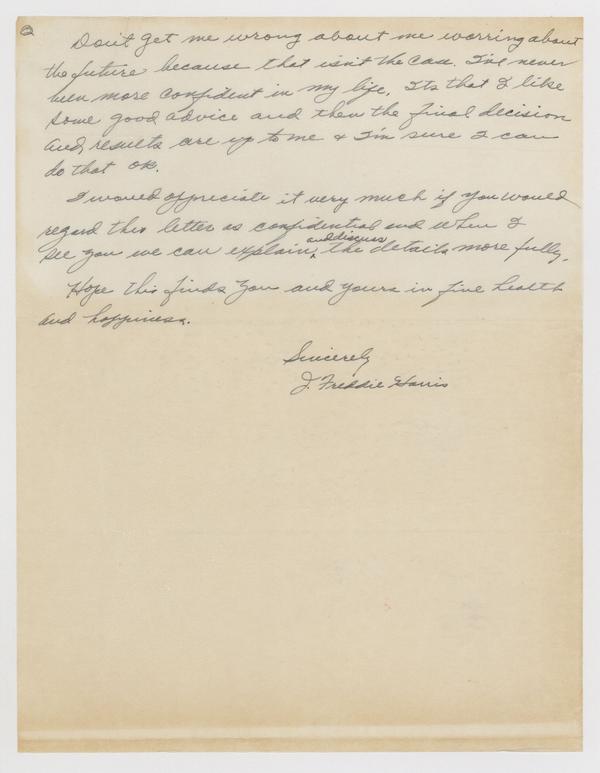 2
Don't get me wrong about me worring about
the future because that isn't the case. I've never
been more confident in my life. Its that I like
some good advice and then the final decision
and results are up to me & I'm sure I can
do that ok.
I would appreciate it very much if you would
regard this letter as confidential and when I
see you we can explain and discuss the details more fully.
Hope this finds you and yours in fine health
and happiness.
Sincerely
J. Freddie Harris